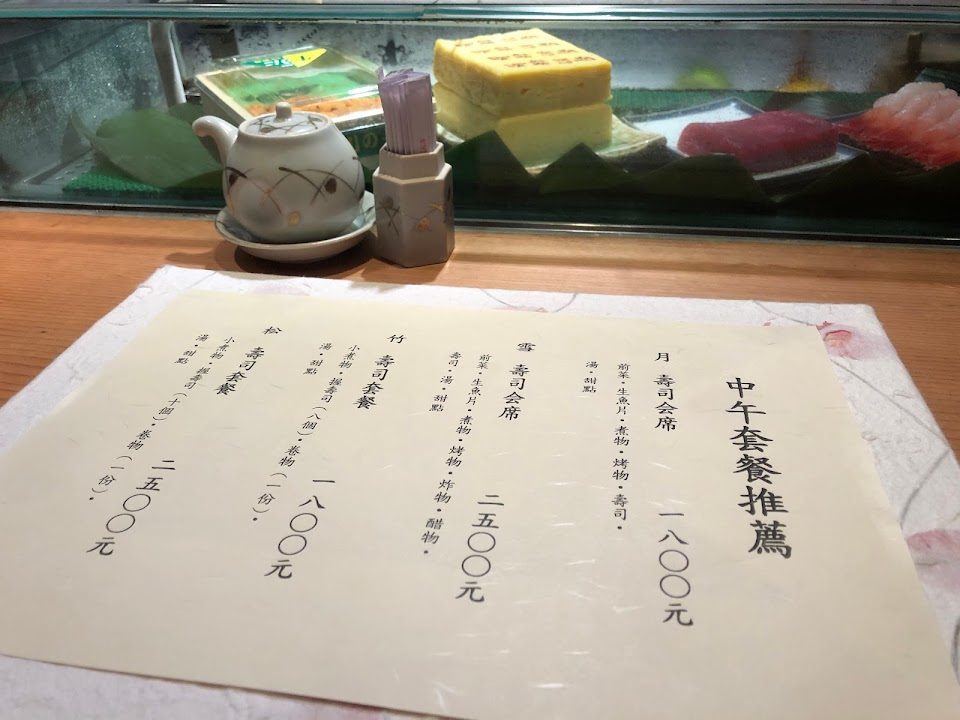 中午套餐推薦
月 壽司会席 一八〇〇元
前菜・生魚片・煮物・烤物・壽司・
湯・甜點
雪 壽司会席 二五〇〇元
前菜・生魚片・煮物・烤物・炸物・醋物・
壽司・湯・甜點
竹 壽司套餐 一八〇〇元
小煮物・握壽司（八個）・卷物（一份）・
湯・甜點
松 壽司套餐 二五〇〇元
小煮物・握壽司（十個）・卷物（一份）・
湯・甜點